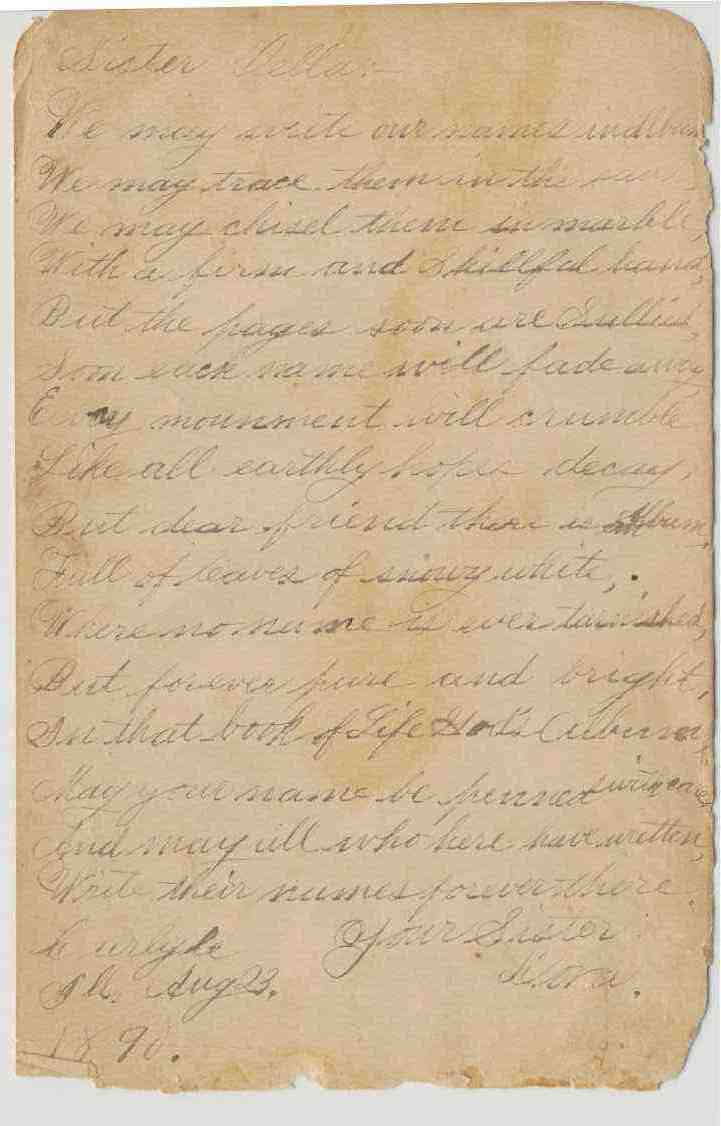 Sister Della:—
We may write our names in Album
We may trace them in the sand,
We may chisel them in marble,
With a firm and Skillful hand,
But the pages soon are Sullied,
Soon each name will fade away
Every mounment will crumble
Like all earthly hopes decay,
But dear friend there is Album,
Full of leaves of snowy white,
Where no name is ever tarnished,
But forever pure and bright,
In that book of Life God's Album,
May your name be penned with care
And may all who here have written,
Write their names forever there.
Your Sister
Carlyle
Ill. Aug 23.
1890.